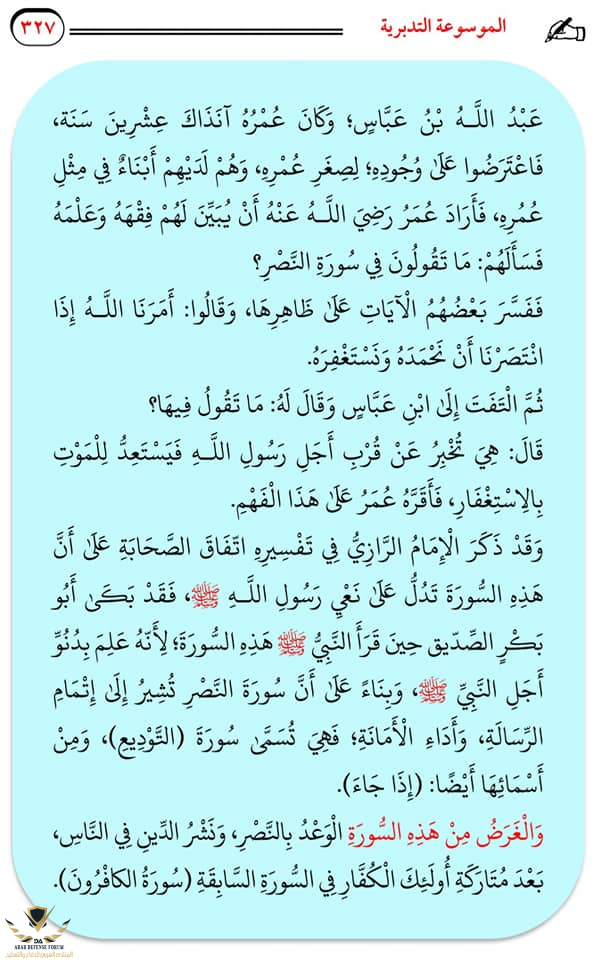 الموسوعة التدبرية
٣٢٧
عَبْدُ اللَّـهُ بْنُ عَبَّاسٍ؛ وَكَانَ عُمْرُهُ آنَذَاكَ عِشْرِينَ سَنَة،
فَاعْتَرَضُوا عَلَىٰ وُجُودِهِ؛ لِصِغَرِ عُمْرِهِ، وَهُمْ لَدَيْهِمْ أَبْنَاءٌ فِي مِثْلِ
عُمُرِهِ، فَأَرَادَ عُمَرُ رَضِيَ اللَّـهُ عَنْهُ أَنْ يُبَيِّنَ لَهُمْ فِقْهَهُ وَعَلْمَهُ
فَسَأَلَهُمْ: مَا تَقُولُونَ فِي سُورَةِ النَّصْرِ؟
فَفَسَّرَ بَعْضُهُمُ الْآيَاتِ عَلَىٰ ظَاهِرِهَا، وَقَالُوا: أَمَرَنَا اللَّـهُ إِذَا
انْتَصَرْنَا أَنْ نَحْمَدَهُ وَنَسْتَغْفِرَهُ.
ثُمَّ الْتَفَتَ إِلَىٰ ابْنِ عَبَّاسٍ وَقَالَ لَهُ: مَا تَقُولُ فِيهَا؟
قَالَ: هِيَ تُخْبِرُ عَنْ قُرْبِ أَجَلِ رَسُولِ اللَّـهِ فَيَسْتَعِدُّ لِلْمَوْتِ
بِالِاسْتِغْفَارِ، فَأَقَرَّهُ عُمَرُ عَلَىٰ هَذَا الْفَهْمِ.
وَقَدْ ذَكَرَ الْإِمَامُ الرَّازِيُّ فِي تَفْسِيرِهِ اتِّفَاقَ الصَّحَابَةِ عَلَىٰ أَنَّ
هَذِهِ السُّورَةَ تَدُلُّ عَلَىٰ نَعْيِ رَسُولِ اللَّـهِ ﷺ، فَقَدْ بَكَىٰ أَبُو
بَكْرٍ الصِّدّيق حِينَ قَرَأَ النَّبِيُّ ﷺ هَذِهِ السُّورَةَ؛ لِأَنَّهُ عَلِمَ بِدُنُوِّ
أَجَلِ النَّبِيِّ ﷺ، وَبِنَاءً عَلَىٰ أَنَّ سُورَةَ النَّصْرِ تُشِيرُ إِلَىٰ إِتْمَامِ
الرِّسَالَةِ، وَأَدَاءِ الْأَمَانَةِ؛ فَهِيَ تُسَمَّىٰ سُورَةَ (التَّوْدِيعِ)، وَمِنْ
أَسْمَائِهَا أَيْضًا: (إِذَا جَاءَ).
وَالْغَرَضُ مِنْ هَذِهِ السُّورَةِ الْوَعْدُ بِالنَّصْرِ، وَنَشْرُ الدِّينِ فِي النَّاسِ،
بَعْدَ مُتَارَكَةِ أُولَئِكَ الْكُفَّارِ فِي السُّورَةِ السَّابِقَةِ (سُورَةُ الكافْرُونَ).
DA
ARAB DEFENSE FORUM
المنتدى العربي للدفاع والتسليح